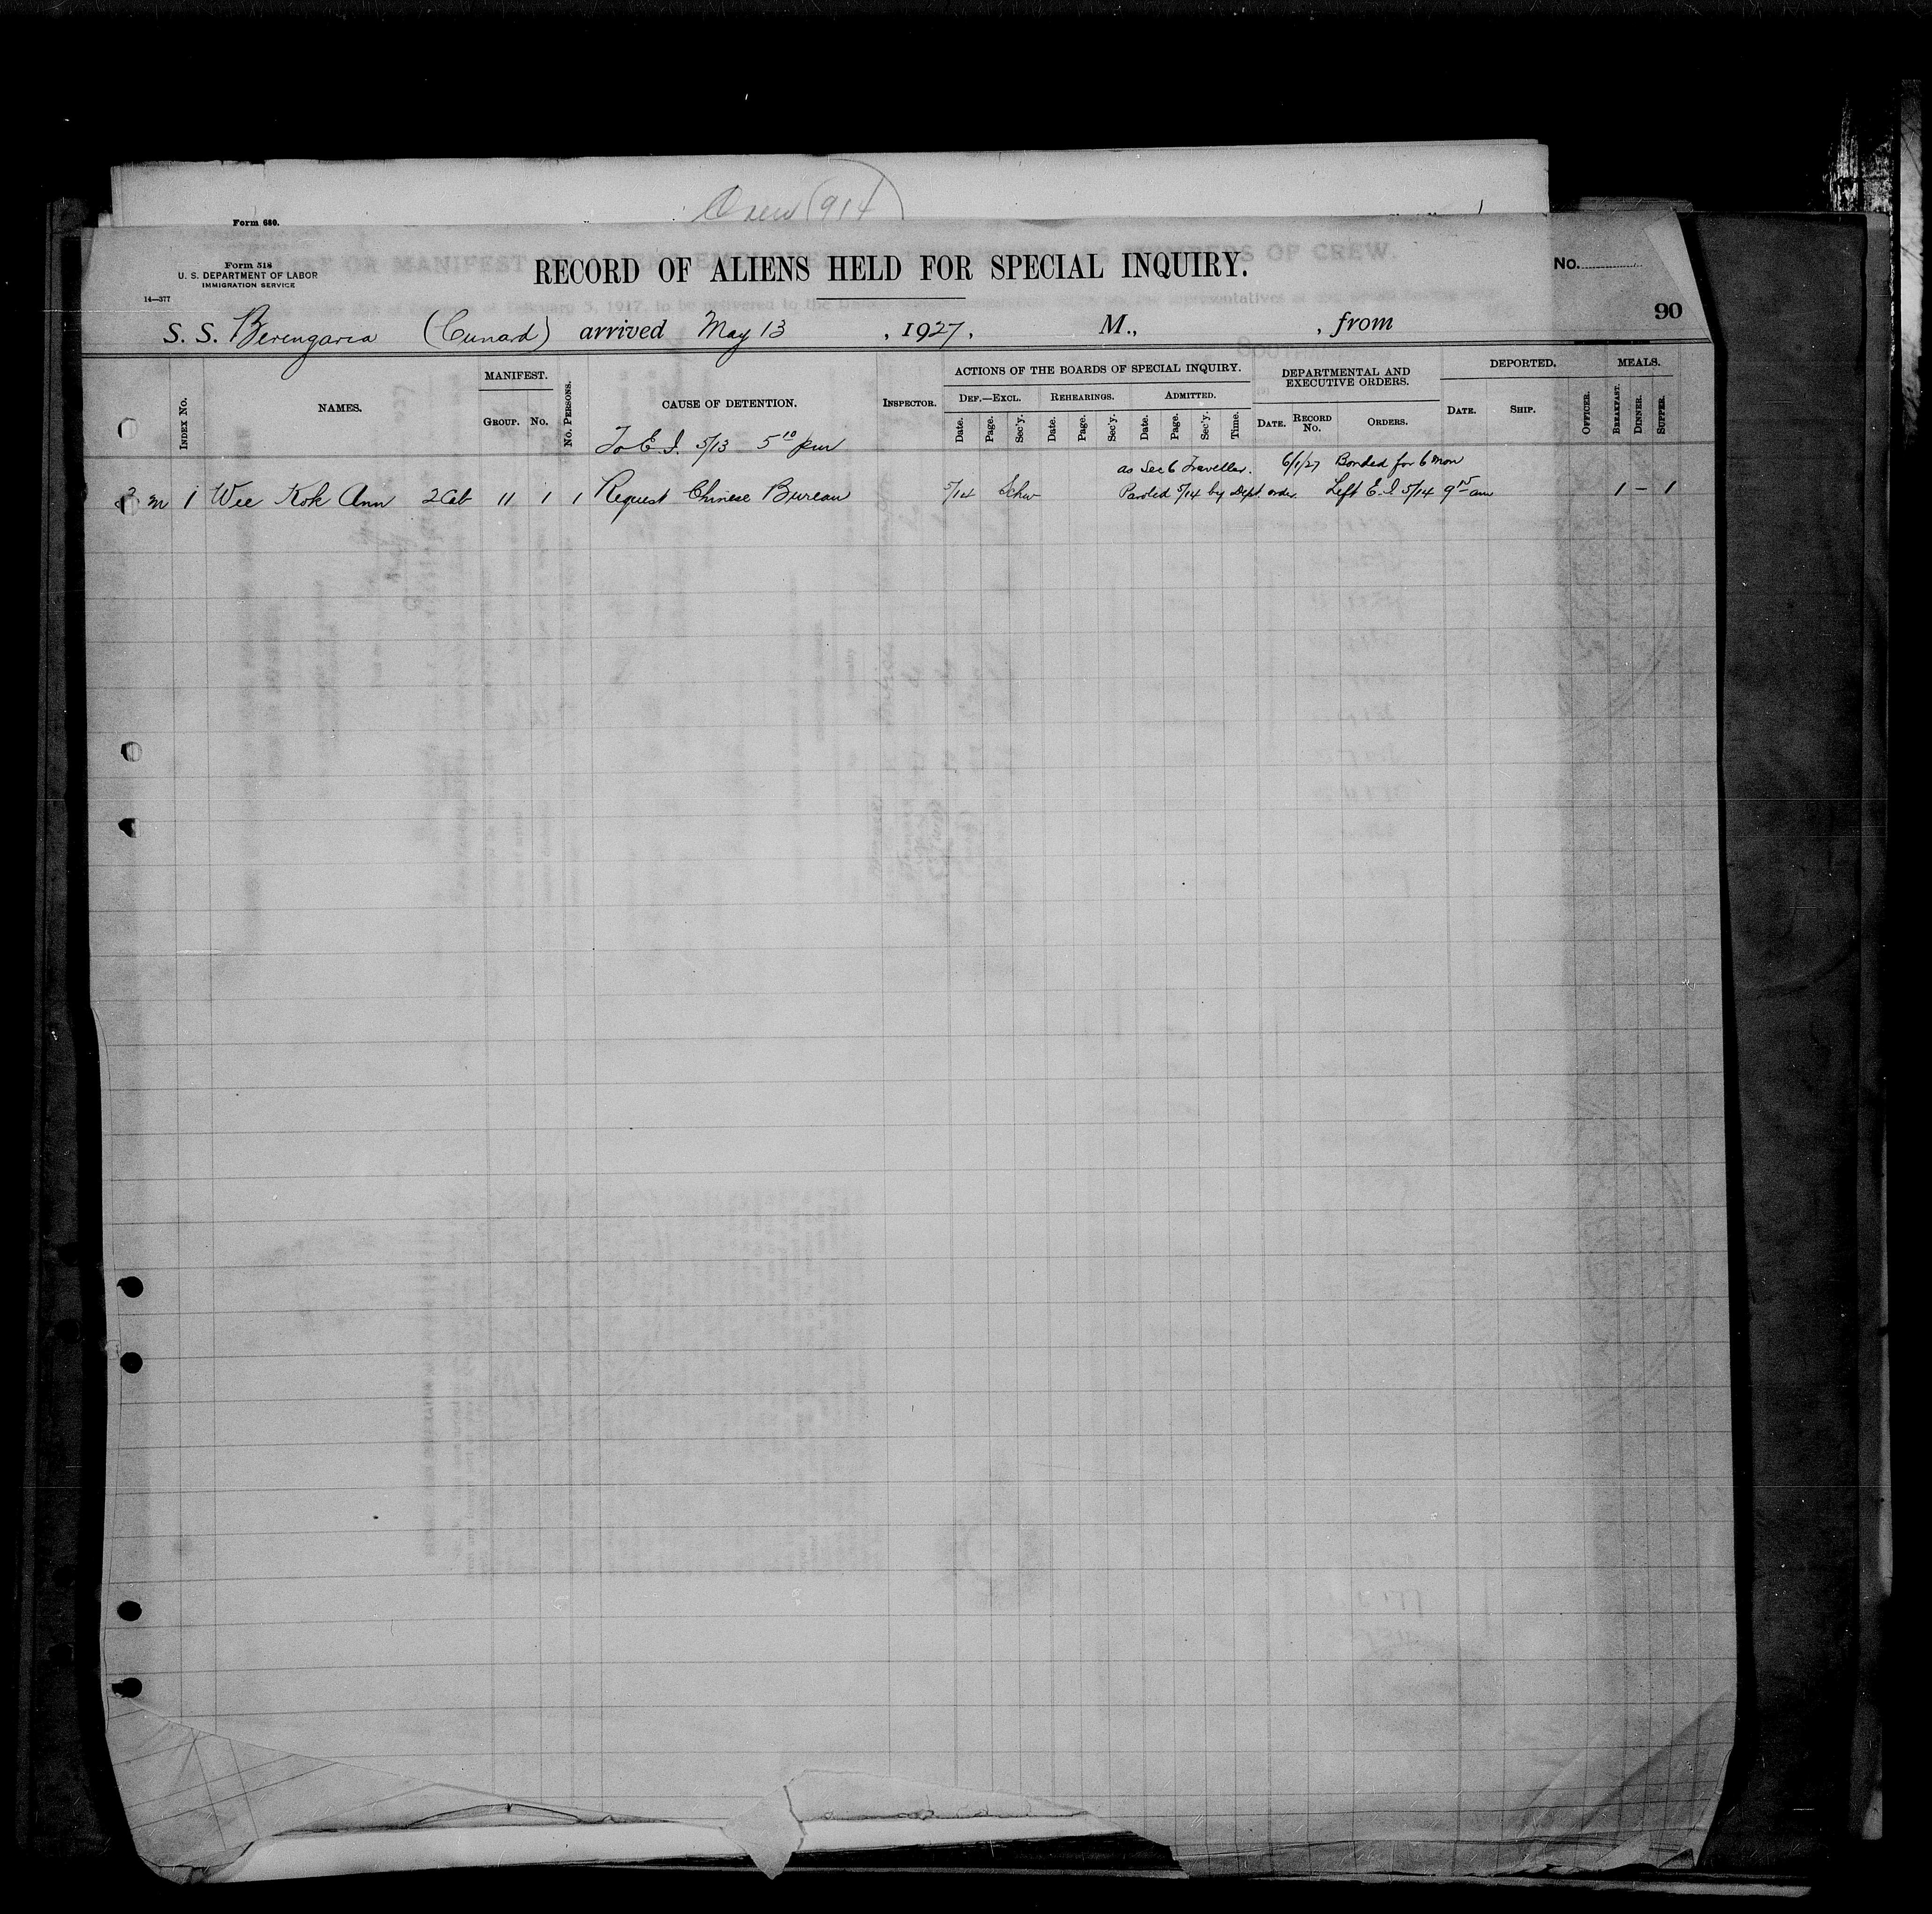 Crew (914)
Form 680.
Form 518
U. S. DEPARTMENT OF LABOR
IMMIGRATION SERVICE
14—377
RECORD OF ALIENS HELD FOR SPECIAL INQUIRY.
No.
90
S. S. Berengaria (Cunard) arrived May 13, 1927, M., , from
INDEX No.
NAMES.
MANIFEST.
GROUP. No.
No. PERSONS.
CAUSE OF DETENTION.
INSPECTOR.
ACTIONS OF THE BOARDS OF SPECIAL INQUIRY.
DEF.—EXCL. REHEARINGS. ADMITTED.
Date. Page. Sec'y. Date. Page. Sec'y. Date. Page. Sec'y. Time.
DEPARTMENTAL AND EXECUTIVE ORDERS.
DATE. RECORD No. ORDERS.
DEPORTED.
DATE. SHIP.
OFFICER.
MEALS.
BREAKFAST. DINNER. SUPPER.
To E.I. 5/13 5 10 pm
as Sec 6 Traveller. 6/1/27 Bonded for 6 mon
m 1 Wee Kok Ann 2 Cab 11 1 1 Request Chinese Bureau 5/14 Schw Paroled 5/14 by Dept. order. Left E.I. 5/14 9 15 am 1 – 1